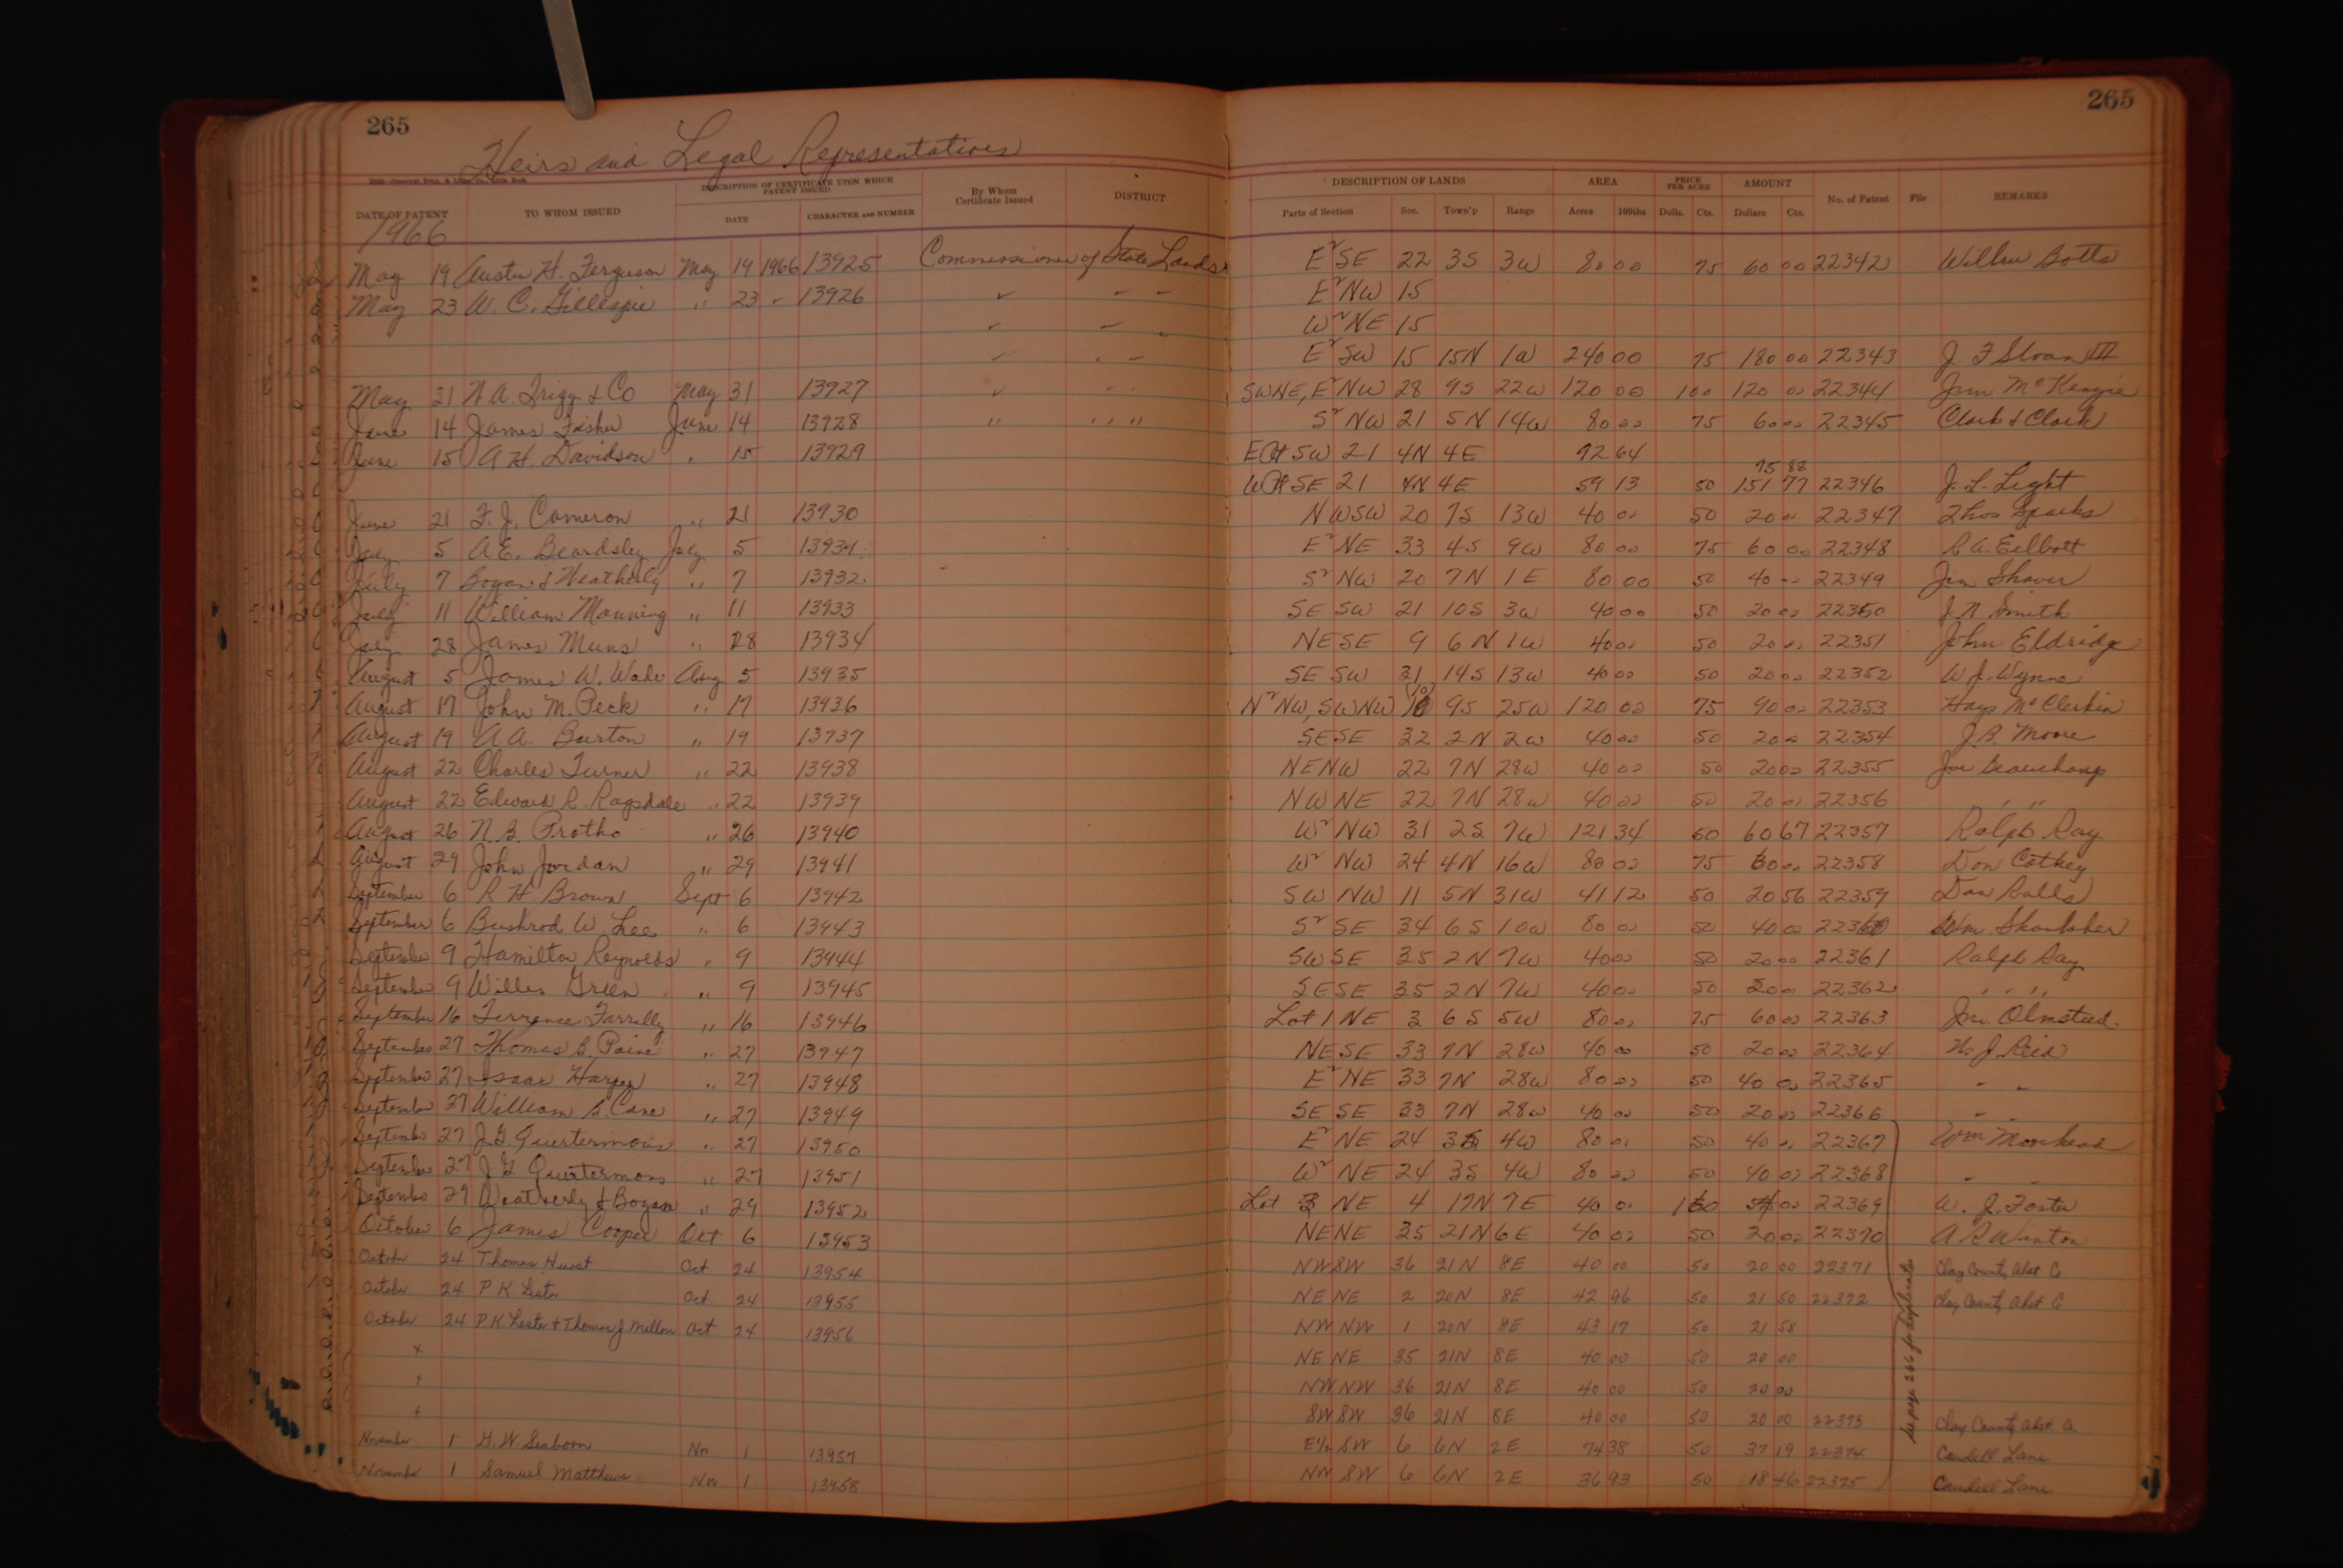 265
265
Heirs and Legal Representatives
DATE OF PATENT TO WHOM ISSUED DESCRIPTION OF CERTIFICATE UPON WHICH PATENT ISSUED DATE CHARACTER AND NUMBER By Whom Certificate Issued DISTRICT DESCRIPTION OF LANDS Parts of Section Sec. Town'p Range AREA Acres 100ths PRICE PER ACRE Dolls. Cts. AMOUNT Dollars Cts. No. of Patent File REMARKS
1966
May 19 Austin H. Ferguson May 19 1966 13925 Commissioner of State Lands E2 SE 22 3S 3W 80 00 75 60 00 22342 Wilbur Botts
May 23 W. C. Gillespie " 23 " 13926 E2 NW 15
W2 NE 15
E2 SW 15 15N 1W 240 00 75 180 00 22343 J. F Sloan III
May 31 N A. Trigg & Co May 31 13927 SWNE, E2 NW 28 9S 22W 120 00 100 120 00 22344 Jim McKenzie
June 14 James Fisher June 14 13928 " " " S2 NW 21 5N 14W 80 00 75 60 00 22345 Clark & Clark
June 15 A H. Davidson " 15 13929 E Pt SW 21 4N 4E 92 64
75 88
W Pt SE 21 4N 4E 59 13 50 151 77 22346 J. L. Light
June 21 F. J. Cameron " 21 13930 NWSW 20 7S 13W 40 00 50 20 00 22347 Thos Sparks
July 5 A E. Beardsley July 5 13931 E2 NE 33 4S 9W 80 00 75 60 00 22348 C A. Eilbott
July 7 Bogan & Weatherly " 7 13932 S2 NW 20 7N 1E 80 00 50 40 00 22349 Jim Shaver
July 11 William Manning " 11 13933 SE SW 21 10S 3W 40 00 50 20 00 22350 J. N. Smith
July 28 James Muns " 28 13934 NESE 9 6N 1W 40 00 50 20 00 22351 John Eldridge
August 5 James W. Wade Aug 5 13935 SE SW 31 14S 13W 40 00 50 20 00 22352 W J. Wynne
August 17 John M. Peck " 17 13936 N2 NW, SWNW 10 9S 25W 120 00 75 90 00 22353 Hays McClerkin
August 19 A A. Burton " 19 13937 SESE 32 2N 2W 40 00 50 20 00 22354 J. B. Moore
August 22 Charles Turner " 22 13938 NENW 22 7N 28W 40 00 50 20 00 22355 Joe Beauchamp
August 22 Edward R. Ragsdale " 22 13939 NWNE 22 7N 28W 40 00 50 20 00 22356 " "
August 26 N. B. Protho " 26 13940 W2 NW 31 2S 7W 121 34 50 60 67 22357 Ralph Ray
August 29 John Jordan " 29 13941 W2 NW 24 4N 16W 80 00 75 60 00 22358 Don Cathey
September 6 R H. Brown Sept 6 13942 SW NW 11 5N 31W 41 12 50 20 56 22359 Dan Ralls
September 6 Bushrod W. Lee " 6 13943 S2 SE 34 6S 10W 80 00 50 40 00 22360 Wm. Shontaber
September 9 Hamilton Reynolds " 9 13944 SWSE 35 2N 7W 40 00 50 20 00 22361 Ralph Ray
September 9 Willis Green " 9 13945 SESE 35 2N 7W 40 00 50 20 00 22362 " "
September 16 Terrence Farrelly " 16 13946 Lot 1 NE 3 6S 5W 80 00 75 60 00 22363 Jno. Olmstead
September 27 Thomas B. Paine " 27 13947 NESE 33 7N 28W 40 00 50 20 00 22364 W. J. Reid
September 27 Isaac Harper " 27 13948 E2 NE 33 7N 28W 80 00 50 40 00 22365 " "
September 27 William B. Cane " 27 13949 SE SE 33 7N 28W 40 00 50 20 00 22366 "
September 27 J. G. Quertermous " 27 13950 E2 NE 24 3S 4W 80 00 50 40 00 22367 Wm Moorhead
September 27 J G Quertermous " 27 13951 W2 NE 24 3S 4W 80 00 50 40 00 22368 " "
September 29 Weatherly & Bogan " 29 13952 Lot 3 NE 4 17N 7E 40 00 22369 W. J. Foster
October 6 James Cooper Oct 6 13953 NENE 35 21N 6E 40 00 50 20 00 22370 A R Winton
October 24 Thomas Hurst Oct 24 13954 NWSW 36 21N 8E 40 00 50 20 00 22371 Clay County Abst Co
October 24 P K Lester Oct 24 13955 NE NE 2 20N 8E 42 96 50 21 50 22372 Clay County Abst Co
October 24 P.K Lester & Thomas J. Mellon Oct 24 13956 NW NW 1 20N 8E 43 17 50 21 58
x NE NE 35 21N 8E 40 00 50 20 00
+ NWNW 36 21N 8E 40 00 50 20 00
+ SWSW 36 21N 8E 40 00 50 20 00 22373 Clay County Abst Co.
November 1 G. W. Seaborn Nov 1 13957 E1/2 SW 6 6N 2E 74 38 50 37 19 22374 Caudell Lane
November 1 Samuel Matthews Nov 1 13958 NW SW 6 6N 2E 36 93 50 18 46 22375 Caudell Lane
See page 266 for duplicates